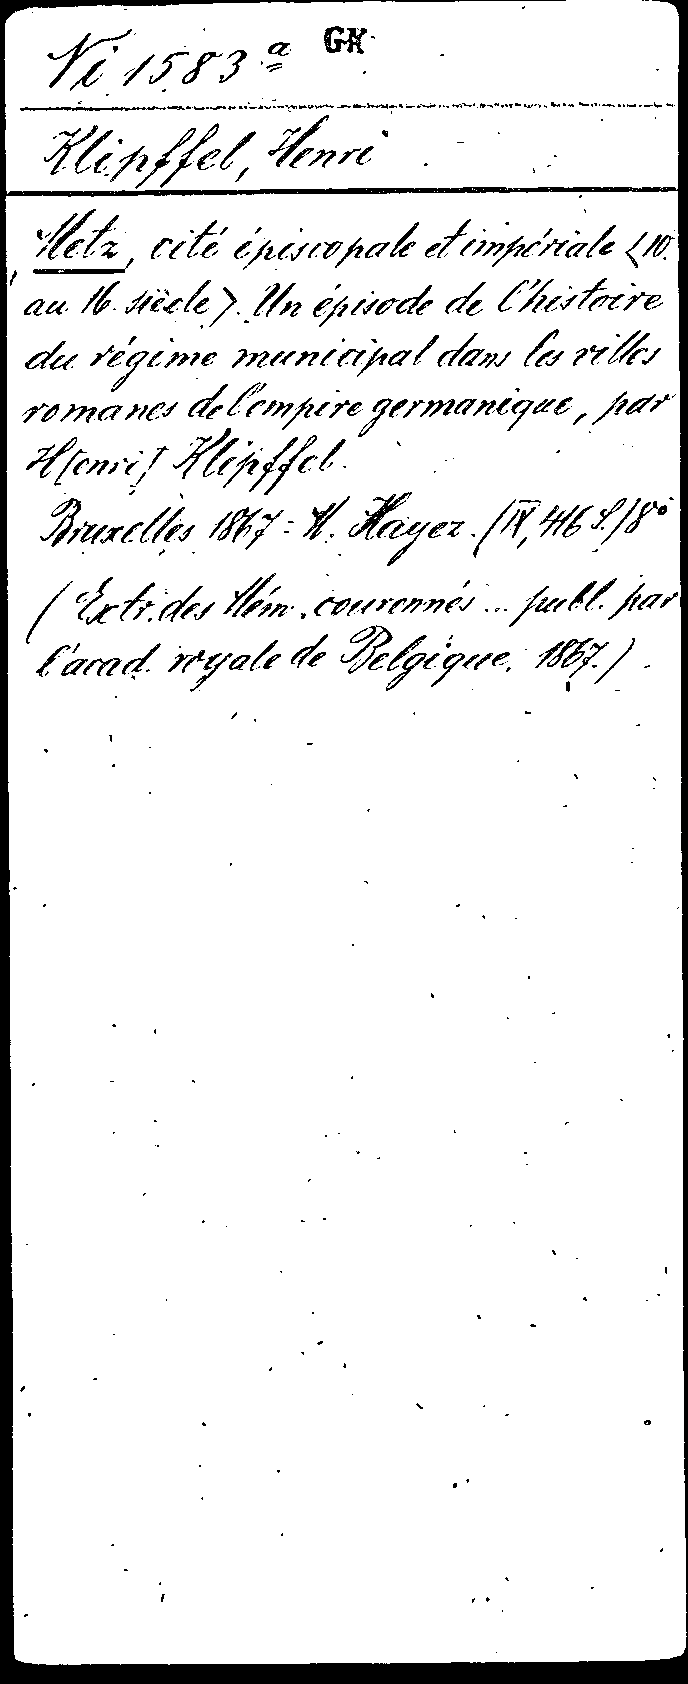 Ni 1583 a GN
Klipffel, Henri
Metz, cité épiscopale et impériale <10.
au 16. siècle>. Un épisode de l'histoire
du régime municipal dans les villes
romanes de l'empire germanique, par
H[enri] Klipffel.
Bruxelles 1867: M. Hayez. (IX, 416 S.) 8°
(Extr. des Mém. couronnés ... publ. par
l'acad. royale de Belgique. 1867.)